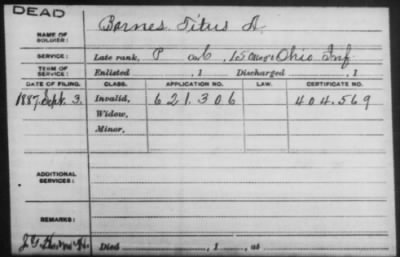 DEAD
NAME OF SOLDIER: Barnes Titus A.
SERVICE: Late rank, P Co. C, 105 Reg't Ohio Inf
TERM OF SERVICE: Enlisted , 1 Discharged , 1
DATE OF FILING. CLASS. APPLICATION NO. LAW. CERTIFICATE NO.
1887 Sept. 3. Invalid, 621.306 404.569
Widow,
Minor,
ADDITIONAL SERVICES:
REMARKS:
Died , 1 , at